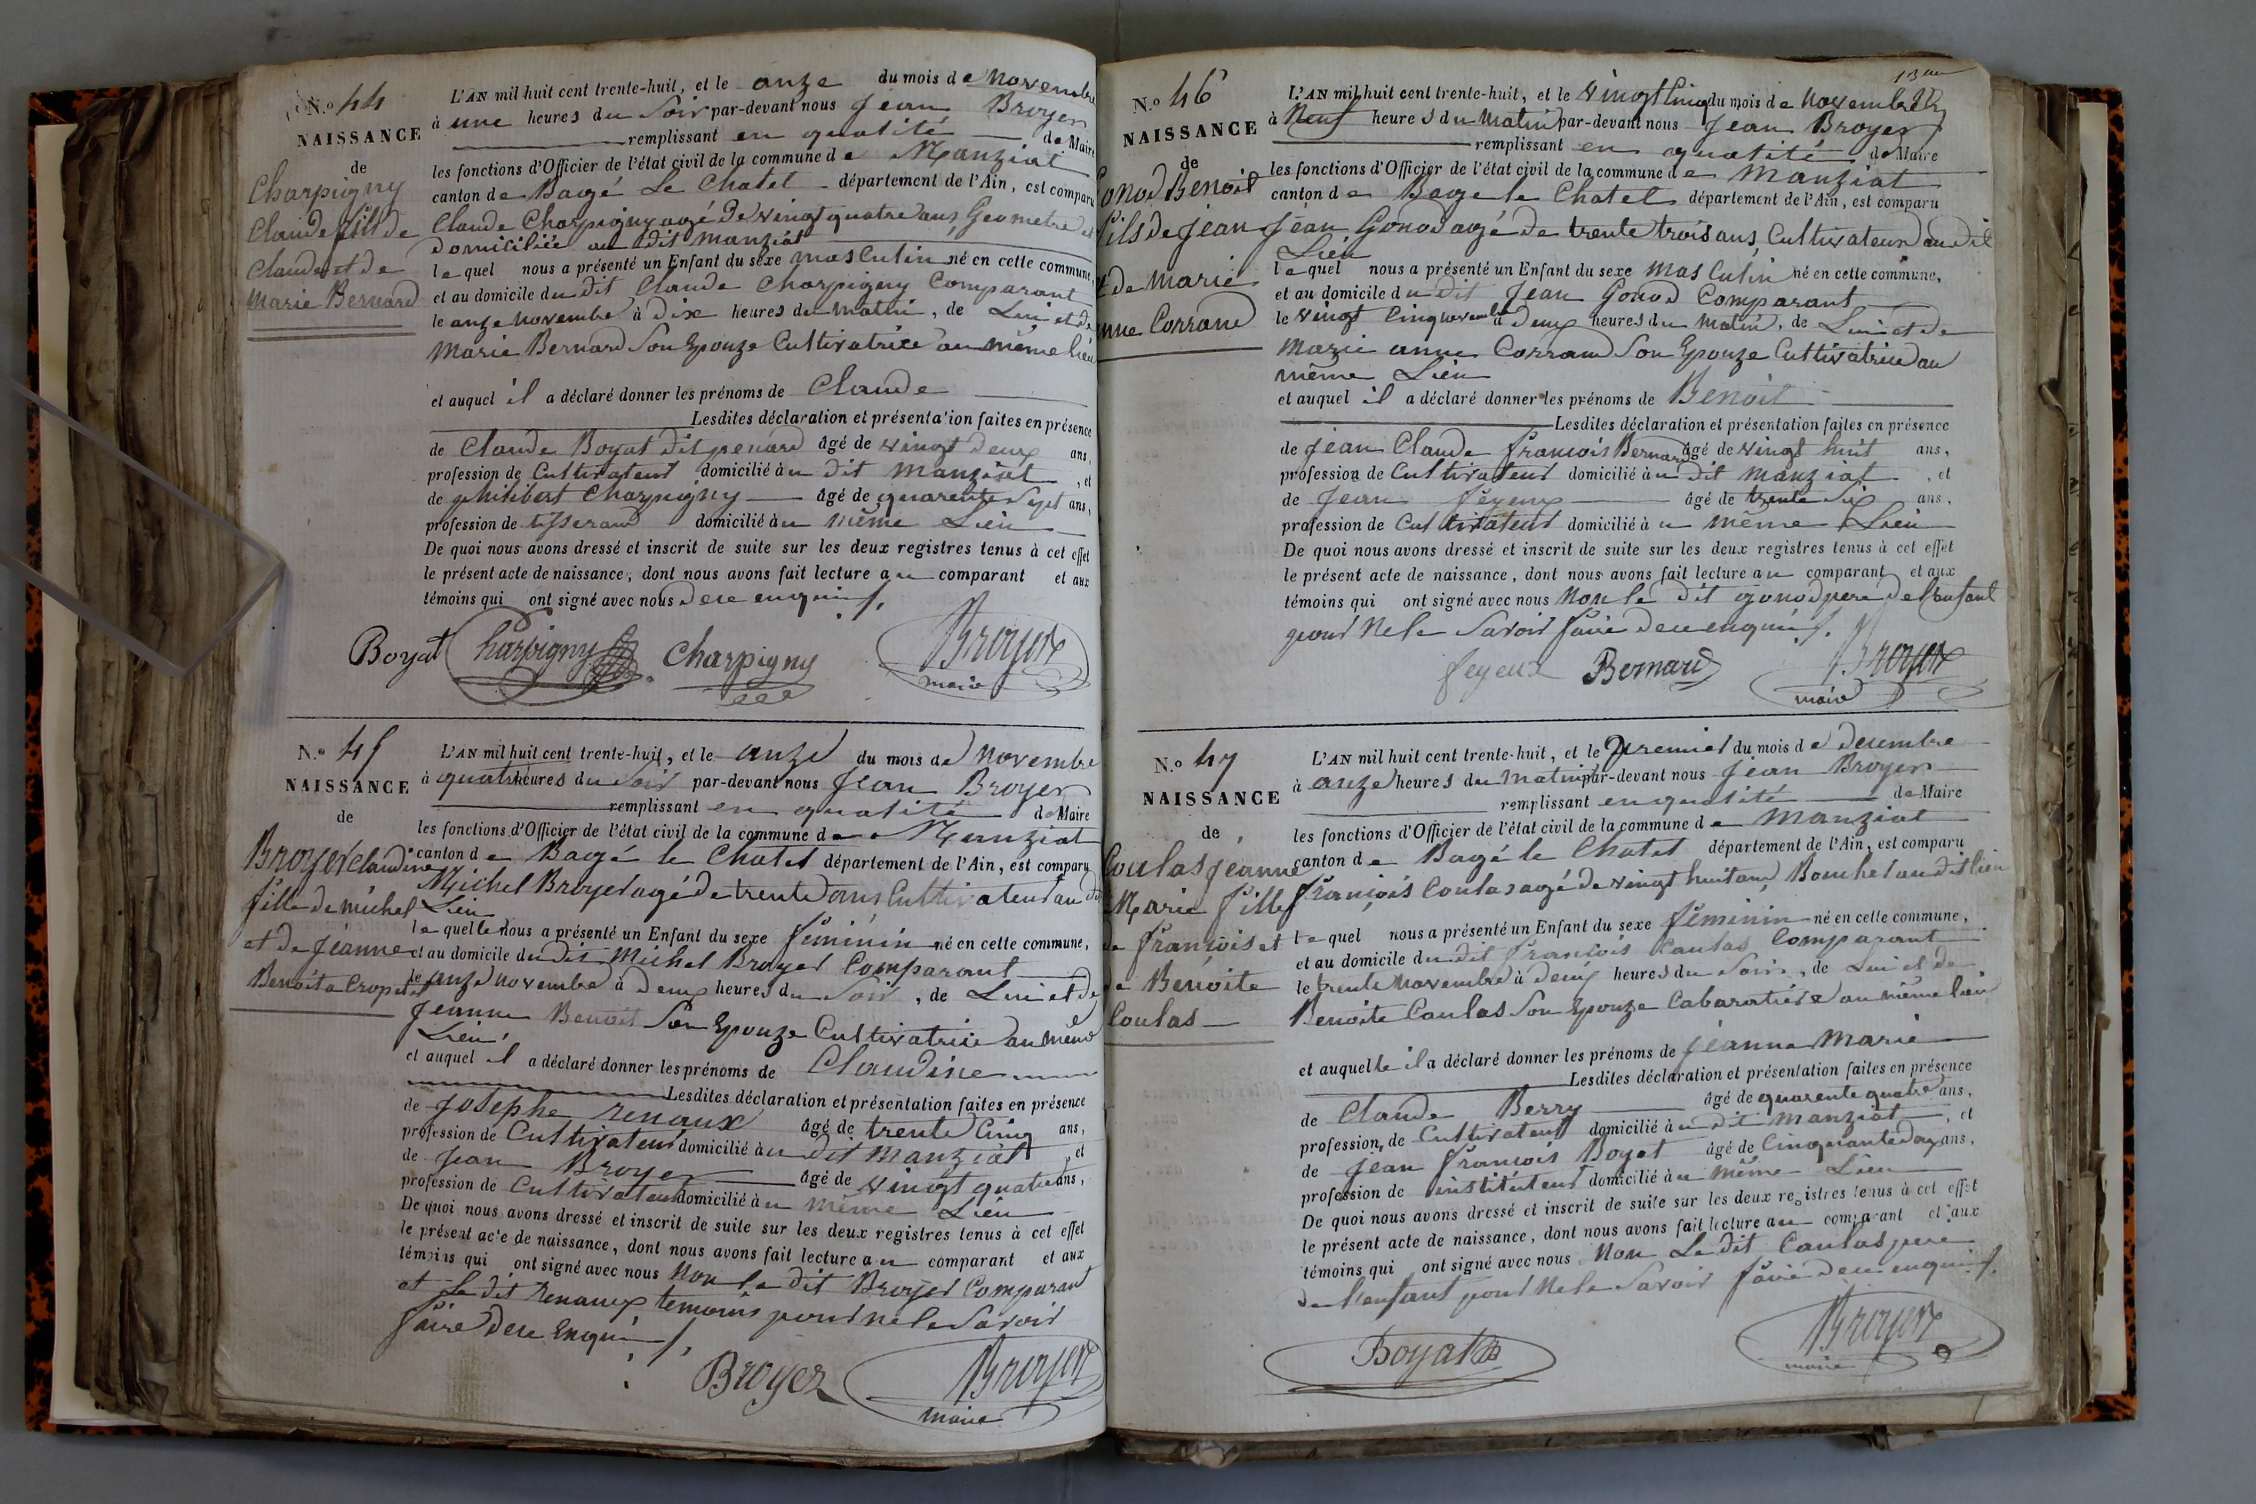 N.º 44
NAISSANCE
de
Charpigny
Claude fils de
Claude et de
Marie Bernard
L'AN mil huit cent trente-huit, et le onze du mois de Novembre
à une heures du Soir par-devant nous Jean Broyer
remplissant en qualité de Maire
les fonctions d'Officier de l'état civil de la commune de Manziat
canton de Bagé Le Chatel département de l'Ain, est comparu
Claude Charpigny agé de vingt quatre ans, Geometre
domiciliée au dit Manziat
lequel nous a présenté un Enfant du sexe masculin né en cette commune,
et au domicile du dit Claude Charpigny Comparant
le onze novembre à dix heures du matin, de Lui et de
Marie Bernard Son Epouze Cultivatrice au même lieu
et auquel il a déclaré donner les prénoms de Claude
Lesdites déclaration et présentation faites en présence
de Claude Boyat dit âgé de vingt deux ans,
profession de Cultivateur domicilié au dit Manziat, et
de philibert Charpigny âgé de quarente Sept ans,
profession de tisserand domicilié au même Lieu
De quoi nous avons dressé et inscrit de suite sur les deux registres tenus à cet effet
le présent acte de naissance, dont nous avons fait lecture au comparant et aux
témoins qui ont signé avec nous de ce enquis
Boyat Charpigny Charpigny Broyer
maire
N.º 45
NAISSANCE
de
Broyer Claudine
fille de Michel
et de Jeanne
Benoite Cropet
L'AN mil huit cent trente-huit, et le onze du mois de Novembre
à quatre heures du Soir par-devant nous Jean Broyer
remplissant en qualité de Maire
les fonctions d'Officier de l'état civil de la commune de Manziat
canton de Bagé le Chatel département de l'Ain, est comparu
Michel Broyer agé de trente ans Cultivateur au dit
Lieu
lequel nous a présenté un Enfant du sexe féminin né en cette commune,
et au domicile du dit Michel Broyer Comparant
le onze novembre à deux heures du Soir, de Lui et de
Jeanne Benoit Son Epouze Cultivatrice au même
Lieu
et auquel il a déclaré donner les prénoms de Claudine
Lesdites déclaration et présentation faites en présence
de Josephe renaux âgé de trente Cinq ans,
profession de Cultivateur domicilié au dit Manziat, et
de Jean Broyer âgé de vingt quatre ans,
profession de Cultivateur domicilié au même Lieu
De quoi nous avons dressé et inscrit de suite sur les deux registres tenus à cet effet
le présent acte de naissance, dont nous avons fait lecture au comparant et aux
témoins qui ont signé avec nous Non le dit Broyer Comparant
et Le dit Renaux temoins pour ne le Savoir
faire de ce Enquis
Broyer Broyer
maire
N.º 46
NAISSANCE
de
Gonod Benoit
fils de Jean
et de Marie
anne Corrand
L'AN mil huit cent trente-huit, et le vingt Cinq du mois de novembre
à Neuf heures du Matin par-devant nous Jean Broyer
remplissant en qualité de Maire
les fonctions d'Officier de l'état civil de la commune de Manziat
canton de Bage le Chatel département de l'Ain, est comparu
Jean Gonod agé de trente trois ans, Cultivateur au dit
Lieu
lequel nous a présenté un Enfant du sexe masculin né en cette commune,
et au domicile du dit Jean Gonod Comparant
le vingt Cinq novembre à deux heures du Matin, de Lui et de
Marie anne Corrand Son Epouze Cultivatrice au
même Lieu
et auquel il a déclaré donner les prénoms de Benoit
Lesdites déclaration et présentation faites en présence
de Jean Claude francois Bernard âgé de vingt huit ans,
profession de Cultivateur domicilié au dit manziat, et
de Jean feyeux âgé de trente Six ans,
profession de Cultivateur domicilié au même Lieu
De quoi nous avons dressé et inscrit de suite sur les deux registres tenus à cet effet
le présent acte de naissance, dont nous avons fait lecture au comparant et aux
témoins qui ont signé avec nous Non le dit gonod pere de l'enfant
pour Ne le Savoir faire de ce enquis
feyeux Bernard Broyer
maire
N.º 47
NAISSANCE
de
Coulas Jeanne
Marie fille
de francois et
de Benoite
Coulas
L'AN mil huit cent trente-huit, et le Premier du mois de decembre
à onze heures du Matin par-devant nous Jean Broyer
remplissant en qualité de Maire
les fonctions d'Officier de l'état civil de la commune de Manziat
canton de Bagé le Chatel département de l'Ain, est comparu
françois Coulas agé de vingt huit ans, Boucher au dit lieu
lequel nous a présenté un Enfant du sexe féminin né en cette commune,
et au domicile du dit francois Coulas Comparant
le trente novembre à deux heures du Soir, de Lui et de
Benoite Coulas Son Epouze Cabaratière au même lieu
et auquelle il a déclaré donner les prénoms de Jeanne Marie
Lesdites déclaration et présentation faites en présence
de Claude Berry âgé de quarente quatre ans,
profession de Cultivateur domicilié au dit Manziat, et
de Jean francois Boyat âgé de Cinquante ans,
profession de instituteur domicilié au même Lieu
De quoi nous avons dressé et inscrit de suite sur les deux registres tenus à cet effet
le présent acte de naissance, dont nous avons fait lecture au comparant et aux
témoins qui ont signé avec nous Non Le dit Coulas pere
de l'enfant pour Ne le Savoir faire de ce enquis
Boyat Broyer
maire